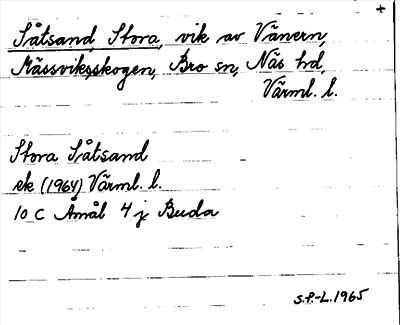 +
Såtsand, Stora, vik av Vänern,
Mässviksskogen, Bro sn, Näs hd,
Värml. l.
Stora Såtsand
ek (1964) Värml. l.
10 C Åmål 4 j Buda
S.F-L. 1965